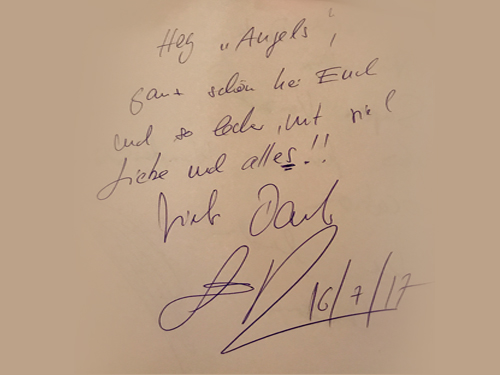 Hey „Angels",
ganz schön bei Euch
und so locker, mit viel
Liebe und alles!!
Vielen Dank
16/7/17